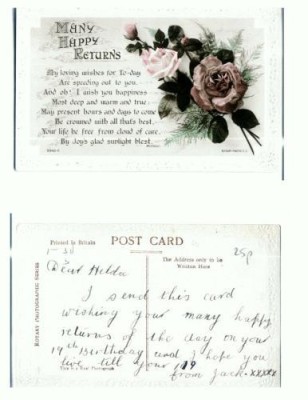 MANY
HAPPY
RETURNS
My loving wishes for To-day
Are speeding out to you.
And oh! I wish you happiness
Most deep and warm and true
May present hours and days to come
Be crowned with all that's best.
Your life be free from cloud of care.
By Joy's glad sunlight blest.
Printed in Britain
POST CARD
The Address only to be
Written Here
25p
ROTARY PHOTOGRAPHIC SERIES
Dear Hilda
I send this card
wishing your many happy
returns of the day on your
19th Birthday and I hope you
live till your 109
This is a Real Photograph
from Jack. xxxxx